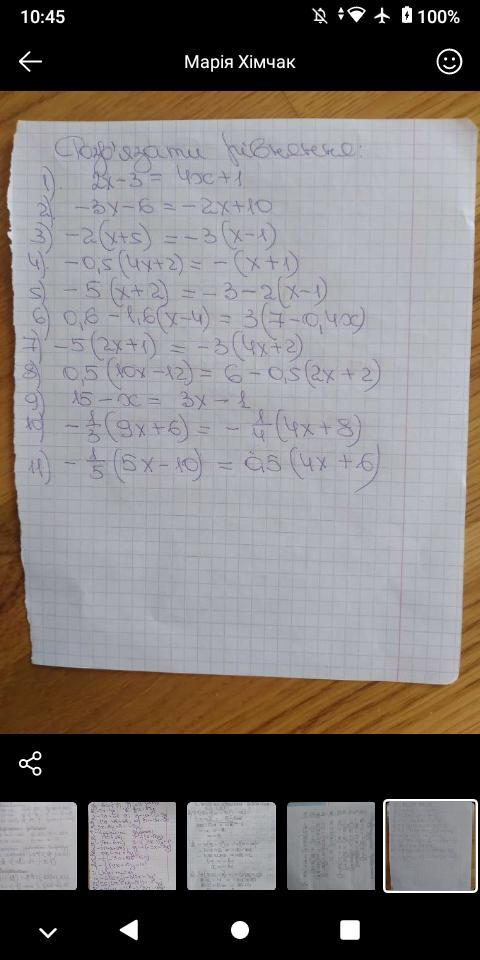 10:45
100%
Марія Хімчак
Розв'язати рівняння:
1) 2x-3 = 4x+1
2) -3x-6 = -2x+10
3) -2(x+5) = -3(x-1)
4) -0,5(4x+2) = -(x+1)
5) -5(x+2) = -3-2(x-1)
6) 0,6-1,6(x-4) = 3(7-0,4x)
7) -5(2x+1) = -3(4x+2)
8) 0,5(10x-12) = 6-0,5(2x+2)
9) 15-x = 3x-1
10) -1/3(9x+6) = -1/4(4x+8)
11) -1/5(5x-10) = 0,5(4x+6)